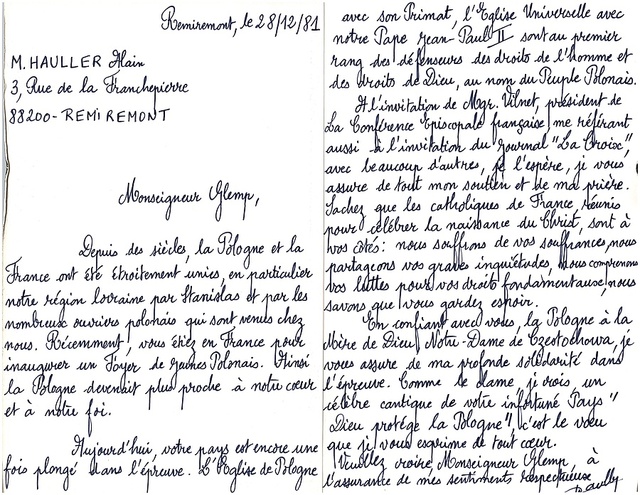 Remiremont, le 28/12/81
M. HAULLER Alain
3, Rue de la Franchepierre
88200 - REMIREMONT
Monseigneur Glemp,
Depuis des siècles, la Pologne et la
France ont été étroitement unies, en particulier
notre région lorraine par Stanislas et par les
nombreux ouvriers polonais qui sont venus chez
nous. Récemment, vous étiez en France pour
inaugurer un Foyer de jeunes Polonais. Ainsi
la Pologne devenait plus proche à notre cœur
et à notre foi.
Aujourd'hui, votre pays est encore une
fois plongé dans l'épreuve. L'Eglise de Pologne
avec son Primat, l'Eglise Universelle avec
notre Pape Jean-Paul II sont au premier
rang des défenseurs des droits de l'homme et
des droits de Dieu, au nom du Peuple Polonais.
A l'invitation de Mgr. Vilnet, président de
La Conférence Episcopale française, me référant
aussi à l'invitation du Journal "La Croix",
avec beaucoup d'autres, je l'espère, je vous
assure de tout mon soutien et de ma prière.
Sachez que les catholiques de France réunis
pour célébrer la naissance du Christ, sont à
vos côtés: nous souffrons de vos souffrances, nous
partageons vos graves inquiétudes, nous comprenons
vos luttes pour vos droits fondamentaux, nous
savons que vous gardez espoir.
En confiant avec vous, la Pologne à la
Mère de Dieu Notre-Dame de Czestochowa, je
vous assure de ma profonde solidarité dans
l'épreuve. Comme le clame, je crois, un
célèbre cantique de votre infortuné Pays "
Dieu protège la Pologne", c'est le vœu
que je vous exprime de tout cœur.
Veuillez croire, Monseigneur Glemp, à
l'assurance de mes sentiments respectueux